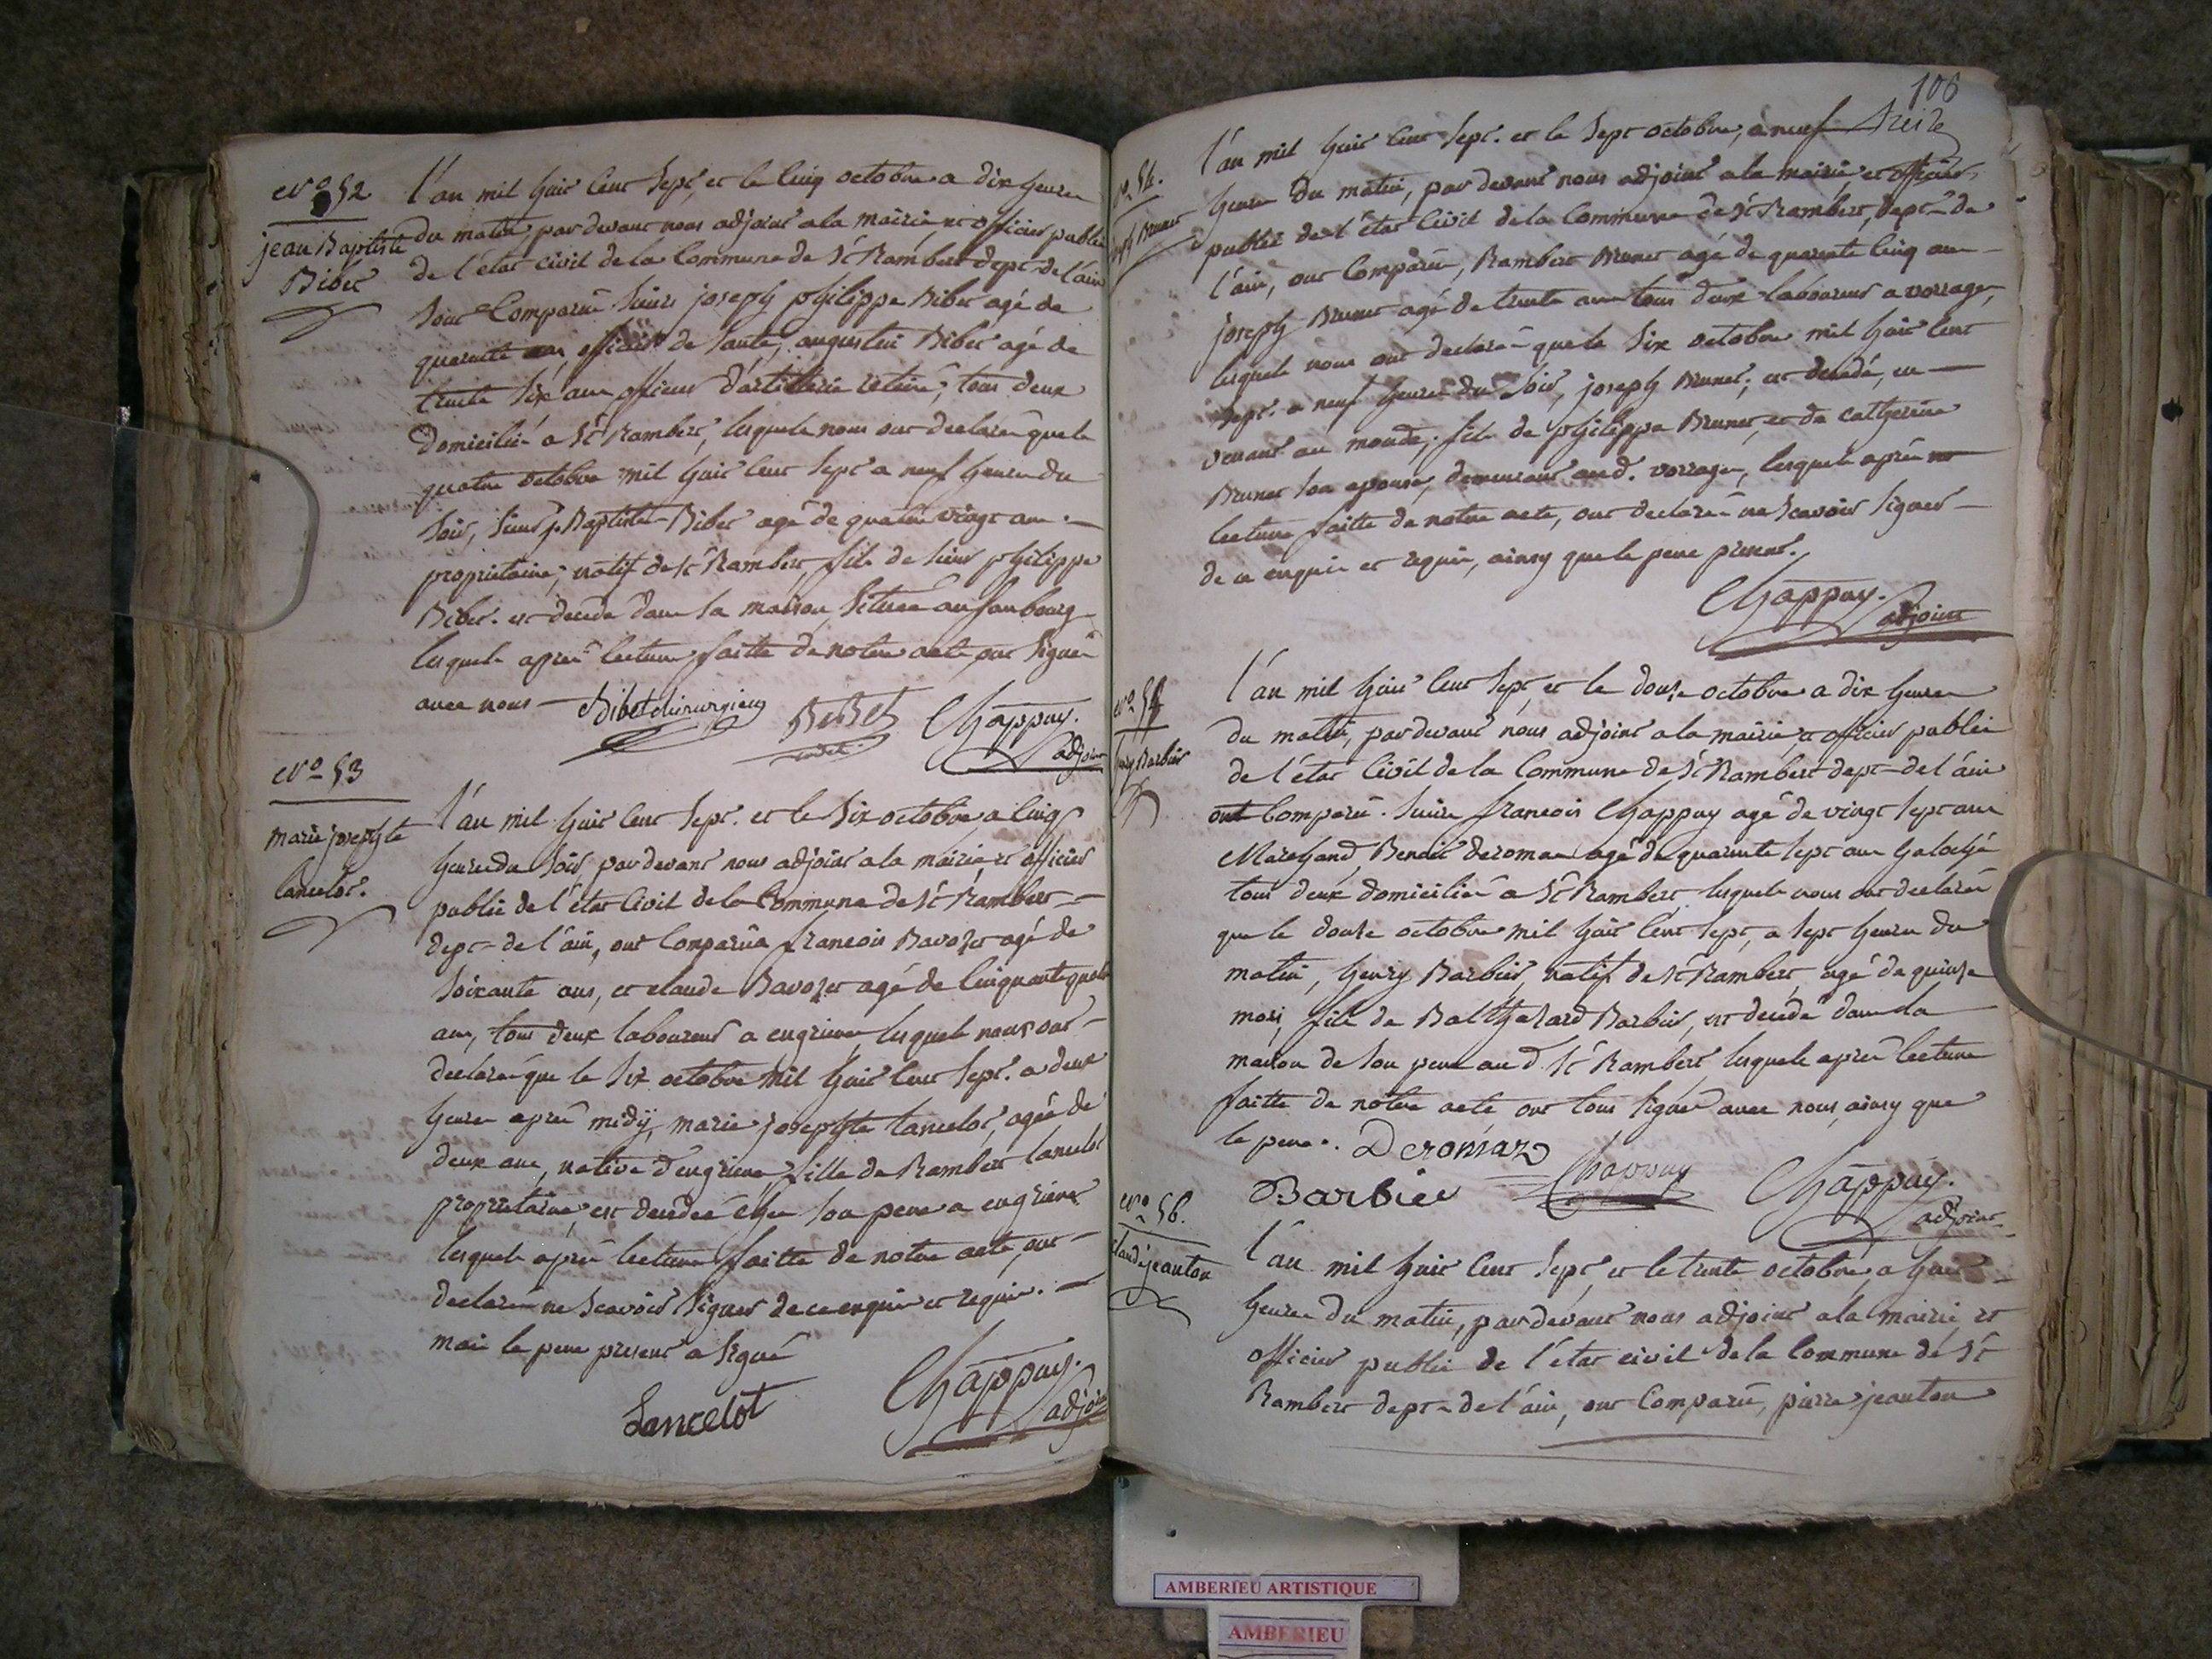 N.º 52
jean Baptiste
Bibet
l'an mil huit cent sept, et le cinq octobre a dix heures
du matin, pardevant nous adjoint a la mairie et officier public
de l'état civil de la Commune de St Rambert dept de l'ain
sont Comparus sieurs joseph philippe Bibet agé de
quarante ans, officier de santé, augustin Bibet agé de
trente six ans officier d'artillerie retiré, tous deux
domiciliés a St Rambert, lesquels nous ont declaré que le
quatre octobre mil huit cent sept a neuf heures du
soir, sieur j. Baptiste Bibet agé de quatre vingt ans
proprietaire, natif de St Rambert, fils de sieur philippe
Bibet est decedé dans sa maison, située au faubourg
lesquels après lecture faitte de notre acte, ont signés
avec nous Bibet chirurgien Bibet cadet Chappuy.
adjoint
N.º 53
marie josephte
lancelot.
l'an mil huit cent sept. et le six octobre, a cinq
heures du soir, pardevant nous adjoint a la mairie, et officier
public de l'état civil de la Commune de St Rambert
dept de l'ain, ont Comparus francois Bavozet agé de
soixante ans, et claude Bavozet agé de cinquante quatre
ans, tous deux laboureurs a engrieres lesquels nous ont
declaré que le six octobre mil huit cent sept. a deux
heures après midy, marie josephte lancelot, agée de
deux ans, native d'engrieres fille de Rambert lancelot
proprietaire, est decedée chez son pere a engrieres
lesquels après lecture faitte de notre acte, ont
declarés ne scavoir signer de ce enquis et requis.
mais le pere present a signé
Lancelot Chappuy.
adjoint
106
n.º 54.
joseph Brunet
l'an mil huit cent sept. et le sept octobre, a neuf
heures du matin, par devant nous adjoint a la mairie et officier
public de l'état civil de la Commune de St Rambert, dept de
l'ain, ont Comparus, Rambert Brunet agé de quarante cinq ans
joseph Brunet agé de trente ans tous deux laboureurs a vorages,
lesquels nous ont declaré que le six octobre mil huit cent
sept. a neuf heures du soir, joseph Brunet, est decedé, en
venant au monde, fils de philippe Brunet, et de catherine
Brunet son epouse, demeurant aud. vorages, lesquels après
lecture faitte de notre acte, ont declarés ne scavoir signer
de ce enquis et requis, ainsy que le pere present.
Chappuy.
adjoint
henry Barbier
l'an mil huit cent sept, et le douze octobre a dix heures
du matin, pardevant nous adjoint a la mairie et officier public
de l'état civil de la Commune de St Rambert dept de l'ain
ont Comparus. sieurs francois Chappuy agé de vingt sept ans
Marchand, Benoit deromas agé de quarante sept ans
tous deux domiciliés a St Rambert, lesquels nous ont declaré
que le douze octobre mil huit cent sept, a sept heures du
matin, henry Barbier, natif de St Rambert, agé de quinze
mois, fils de Balthasard Barbier, est decedé dans la
maison de son pere aud. St Rambert lesquels après lecture
faitte de notre acte ont tous signés avec nous, ainsy que
le pere. Deromaz
Barbier Chappuy Chappuy.
adjoint
N.º 56.
claude jeanton
l'an mil huit cent sept, et le trente octobre, a huit
heures du matin, pardevant nous adjoint a la mairie et
officier public de l'état civil de la Commune de St
Rambert dept de l'ain, ont Comparus, pierre jeanton
AMBERIEU ARTISTIQUE
AMBERIEU